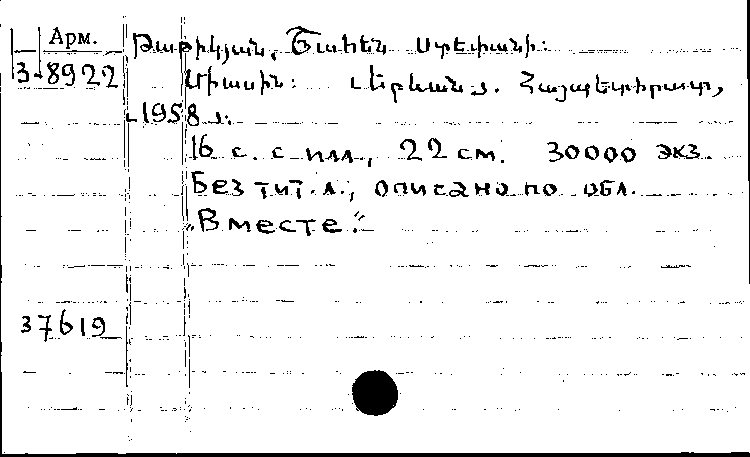 Арм.
3-8922
Թաթիկյան, Շահեն Ստեփանի:
Միասին: Երևան, Հայպետհրատ,
1958
16 с. с илл., 22 см. 30000 экз.
Без тит. л., описано по обл.
"Вместе."
37619